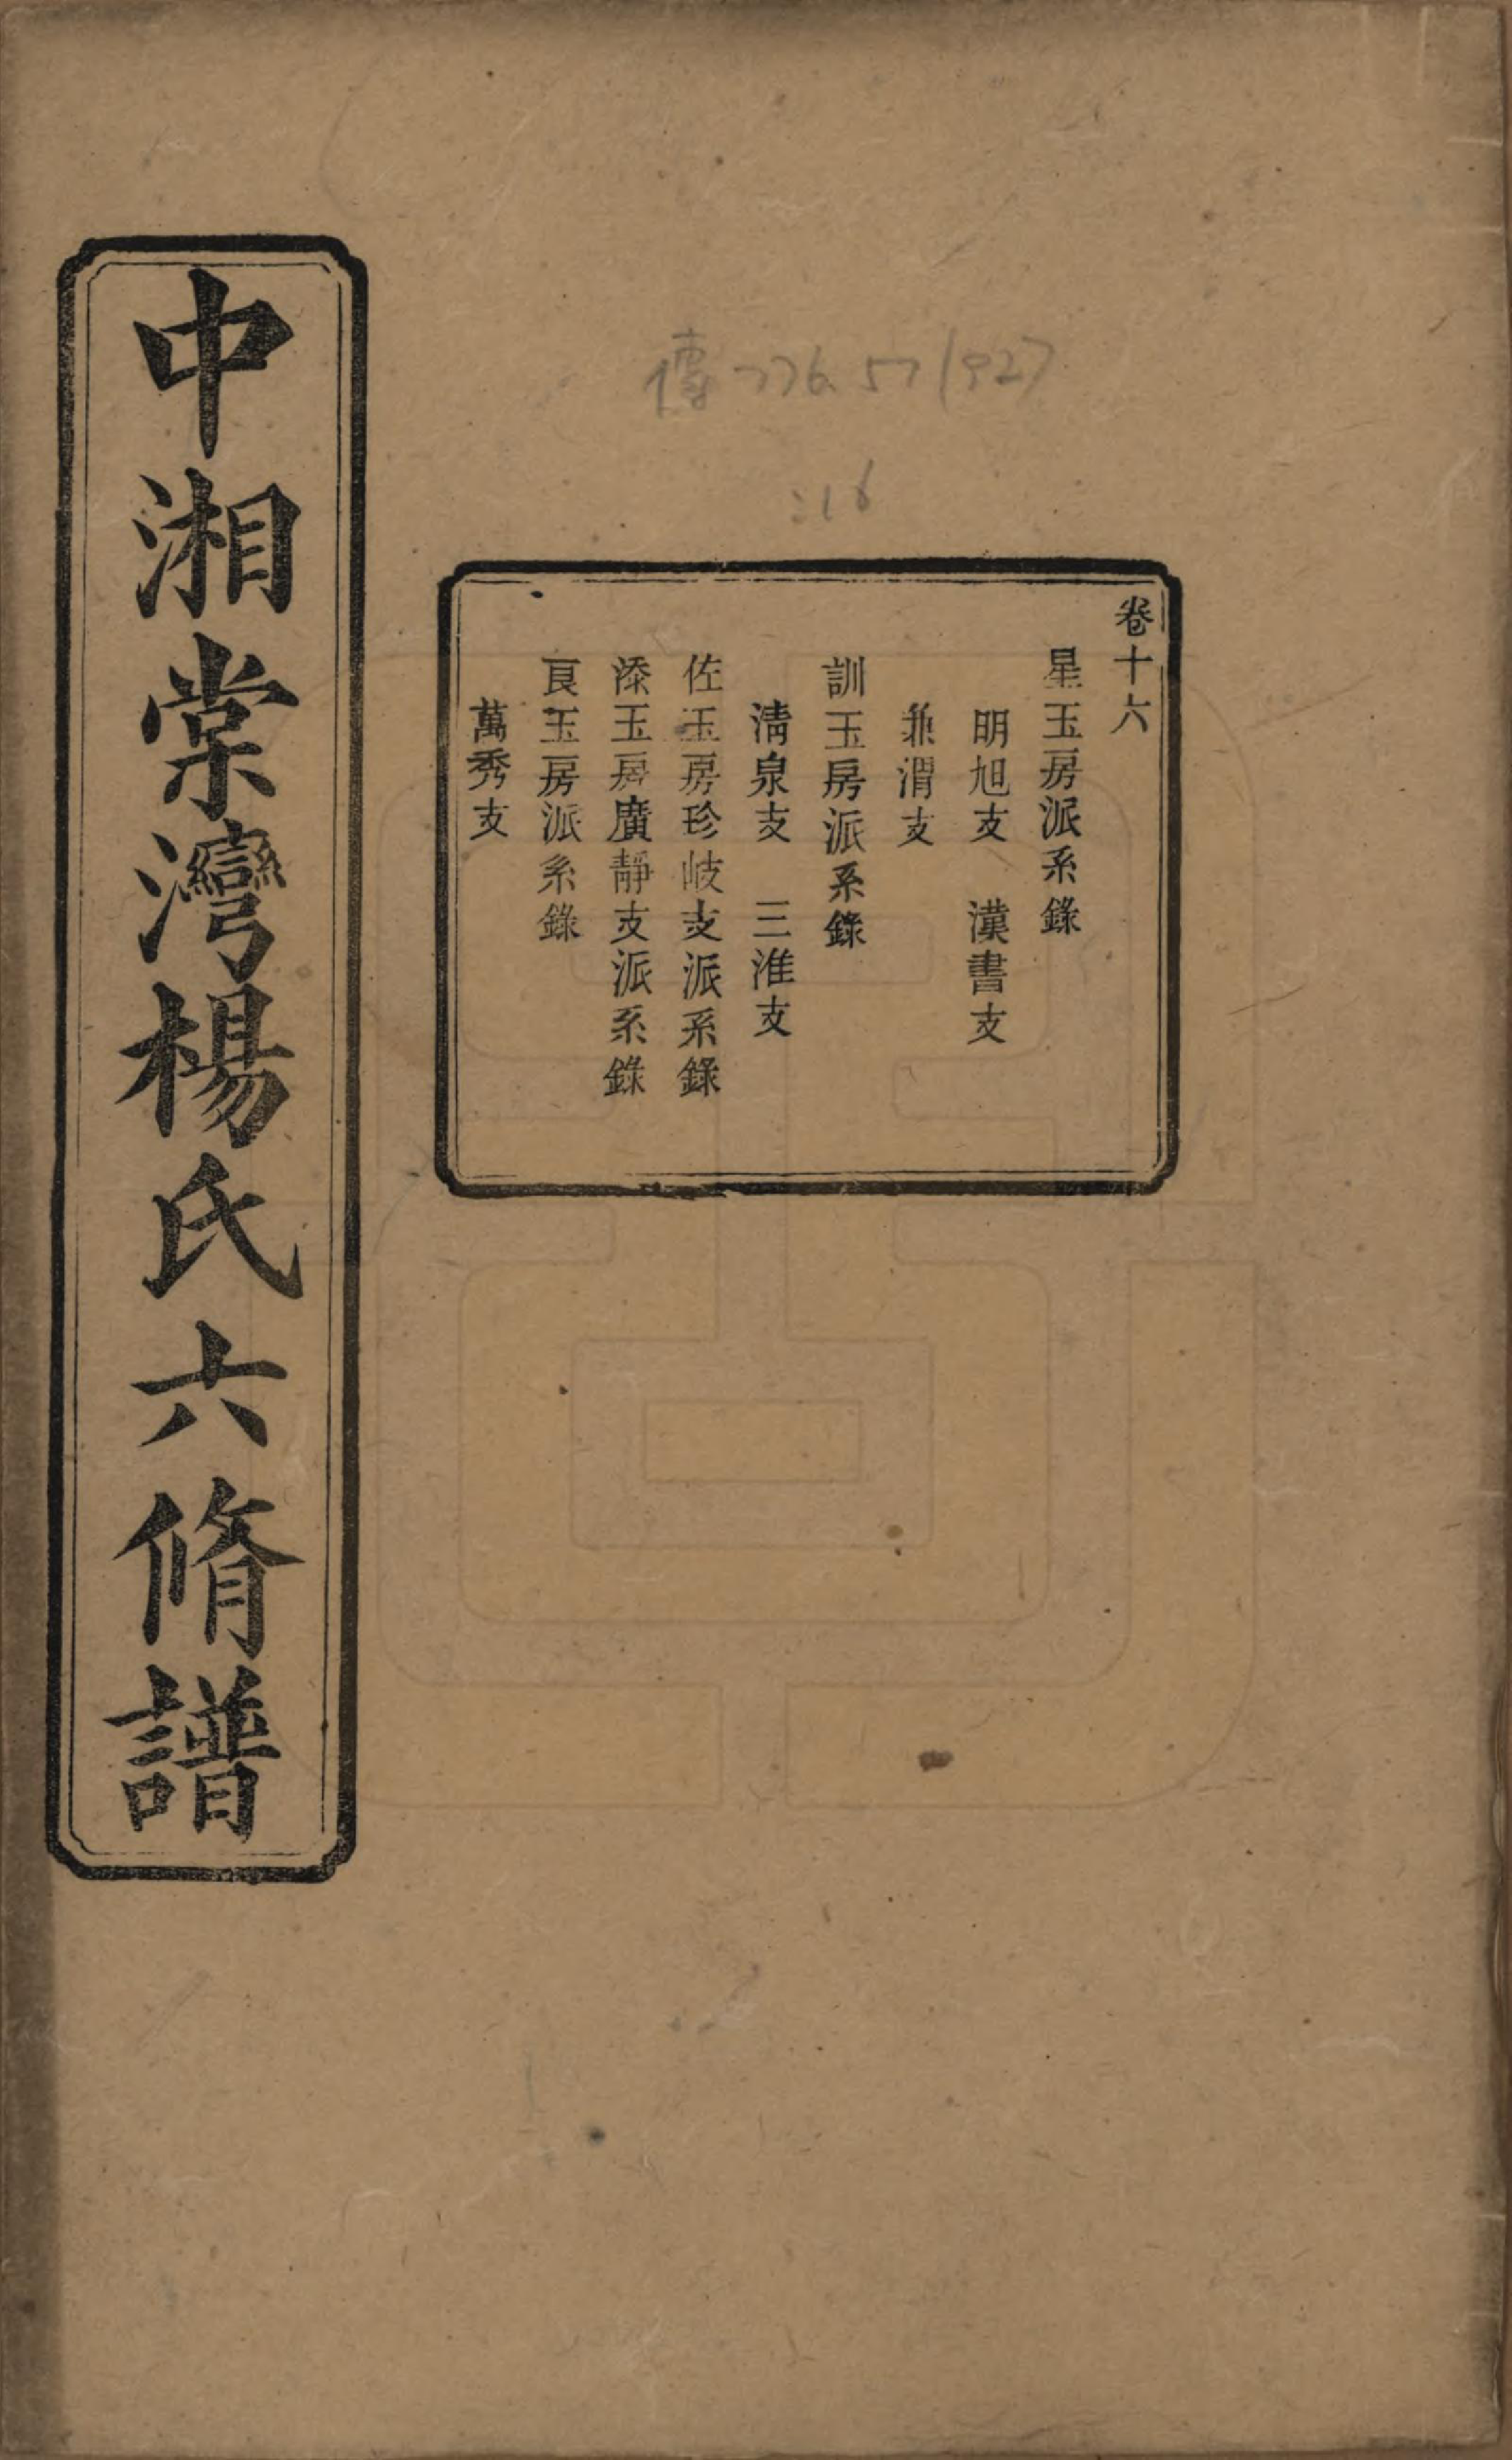 傳776.57/927
:16
卷十六
星玉房派系錄
明旭支　漢書支
兆渭支
訓玉房派系錄
淸泉支　三淮支
佐玉房珍岐支派系錄
添玉房廣靜支派系錄
良玉房派系錄
萬秀支
中湘棠灣楊氏六脩譜